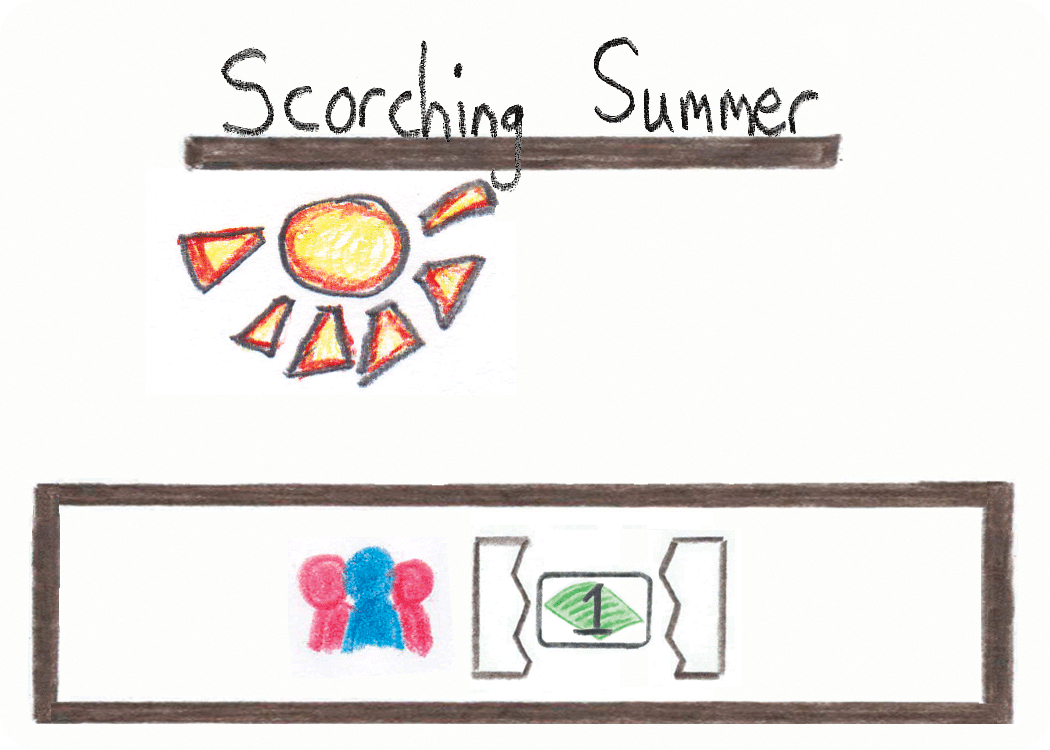 Scorching Summer
1